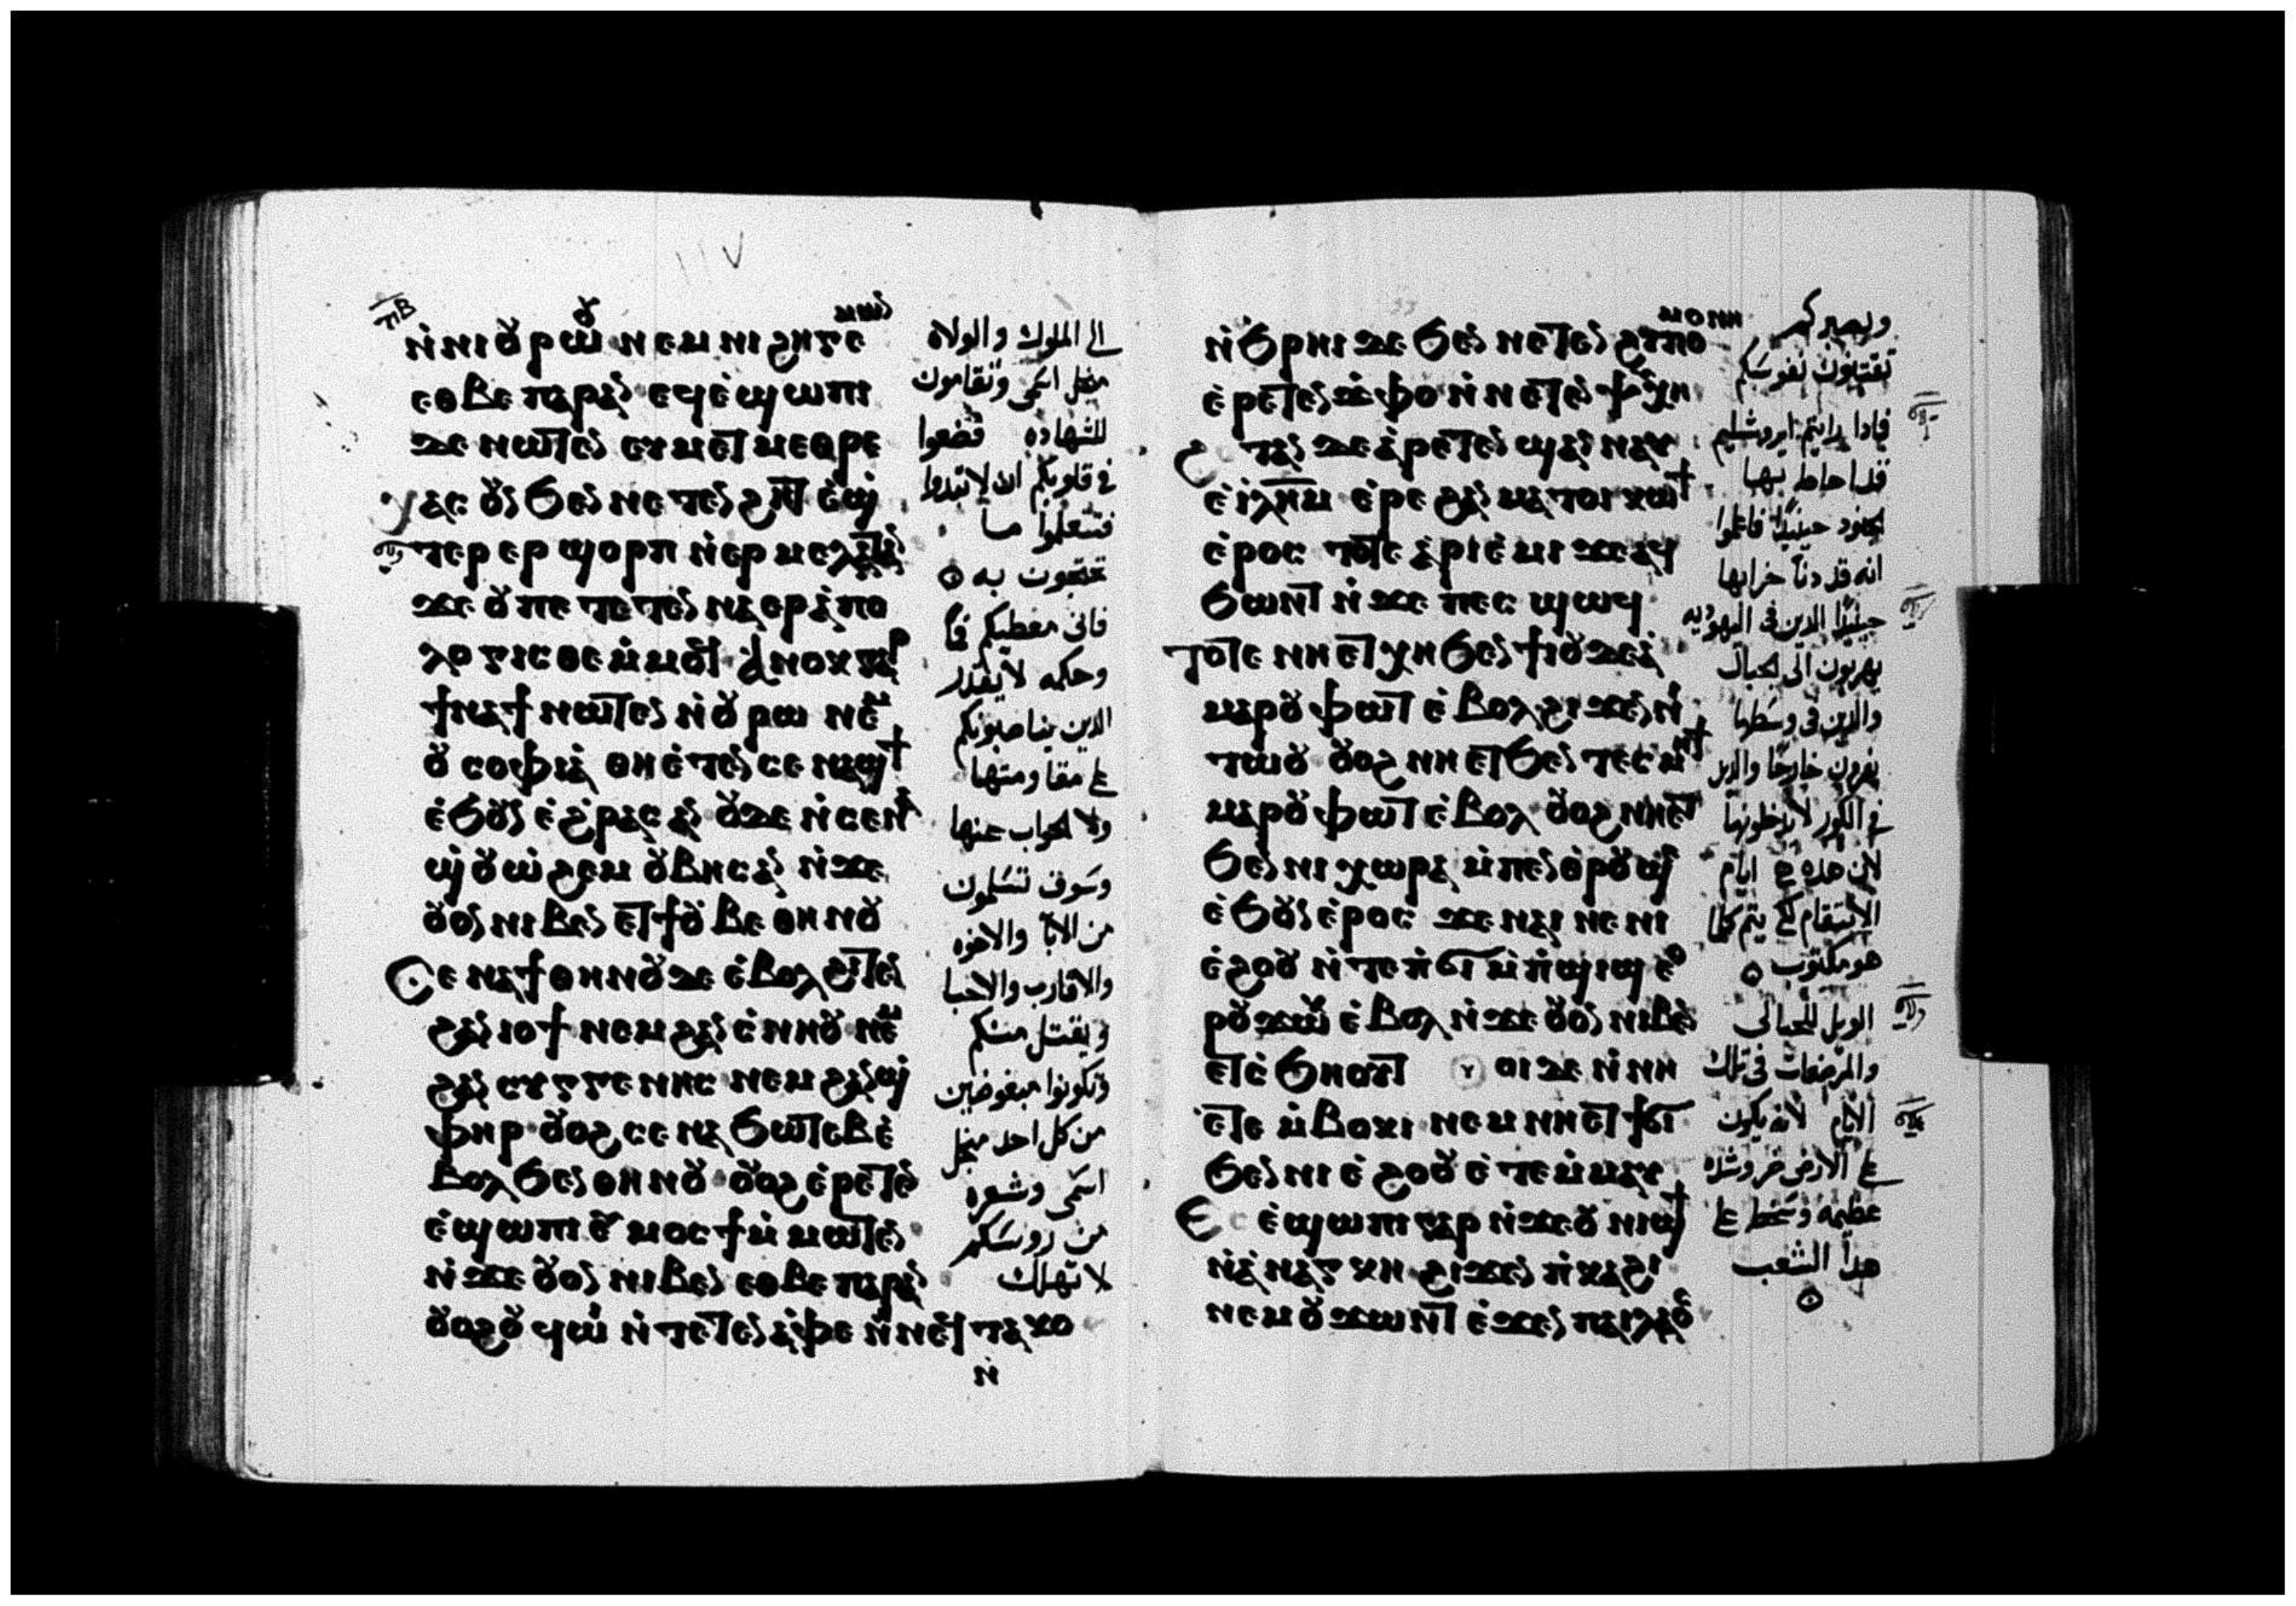 ⲡⲃ
ⲛ̀ⲛⲓⲟⲩⲣⲱⲟⲩ ⲛⲉⲙ ⲛⲓϩⲏⲅⲉⲙⲱⲛ
ⲉⲑⲃⲉ ⲡⲁⲣⲁⲛ ⲉϥⲉ̀ϣⲱⲡⲓ
ⲇⲉ ⲛⲱⲧⲉⲛ ⲉⲩⲙⲉⲧⲙⲉⲑⲣⲉ
ⲭⲁⲥ ⲟⲩⲛ ϧⲉⲛ ⲛⲉⲧⲉⲛϩⲏⲧ ⲉ̀ϣ
ⲧⲉⲣ ⲉⲣ ϣⲟⲣⲡ ⲛ̀ⲉⲣⲙⲉⲗⲉⲧⲁⲛ
ϫⲉ ⲟⲩ ⲡⲉ ⲧⲉⲧⲉⲛⲛⲁⲉⲣⲁ̀ⲡⲟ
ⲗⲟⲅⲓⲥⲑⲉ ⲙ̀ⲙⲟϥ ⲁⲛⲟⲕ ⲅⲁⲣ
ϯⲛⲁϯ ⲛⲱⲧⲉⲛ ⲛ̀ⲟⲩⲣⲱ ⲛⲉⲙ
ⲟⲩⲥⲟⲫⲓⲁ̀ ⲑⲏ ⲉ̀ⲧⲉⲛⲥⲉⲛⲁϣϯ
ⲉ̀ϧⲟⲩⲛ ⲉ̀ϩⲣⲁⲥ ⲁⲛ ⲟⲩⲇⲉ ⲛ̀ⲥⲉⲛⲁ
ϣ̀ⲟⲩⲱ̀ϩⲉⲙ ⲟⲩⲃⲏⲥ ⲁⲛ ⲛ̀ϫⲉ
ⲟⲩⲟⲛ ⲛⲓⲃⲉⲛ ⲉⲧϯⲟⲩⲃⲉ ⲑⲏⲛⲟⲩ
Ⲥⲉⲛⲁϯ ⲑⲏⲛⲟⲩ ⲇⲉ ⲉ̀ⲃⲟⲗ ϩⲓⲧⲉⲛ
ϩⲁⲛⲓⲟϯ ⲛⲉⲙ ϩⲁⲛⲥ̀ⲛⲏⲟⲩ ⲛⲉⲙ
ϩⲁⲛⲥⲩⲅⲅⲉⲛⲏⲥ ⲛⲉⲙ ϩⲁⲛϣ̀
ⲫⲏⲣ ⲟⲩⲟϩ ⲥⲉⲛⲁϧⲱⲧⲉⲃ ⲉ̀
ⲃⲟⲗ ϧⲉⲛ ⲑⲏⲛⲟⲩ ⲟⲩⲟϩ ⲉ̀ⲣⲉⲧⲉⲛ
ⲉ̀ϣⲱⲡⲓ ⲉⲩⲙⲟⲥϯ ⲙ̀ⲙⲱⲧⲉⲛ
ⲛ̀ϫⲉ ⲟⲩⲟⲛ ⲛⲓⲃⲉⲛ ⲉⲑⲃⲉ ⲡⲁⲣⲁⲛ
ⲟⲩⲟϩ ⲟⲩϥⲱⲓ ⲛ̀ⲧⲉ ⲧⲉⲛⲁ̀ⲫⲉ ⲛ̀ⲛⲉϥⲧⲁⲕⲟ
ⲛ̀
الى الملوك والولاة
من اجل اسمى وتقامون
للشهاده فضعوا
فى قلوبكم ان لا تبدوا
فتتعلموا ما
تحتجون به
فانى معطيكم فمًا
وحكمه لا يقدر
الدين يناصبونكم
على مقاومتها
ولا الجواب عنها
وسوف تسلمون
من الابا والاخوه
والاقارب والاحبا
ويقتل منكم
وتكونوا مبغوضين
من كل احد من اجل
اسمى وشعره
من روسكم
لا تهلك
ⲛ̀ϧⲣⲏⲓ ⲇⲉ ϧⲉⲛ ⲧⲉⲧⲉⲛϩⲩⲡⲟⲙⲟⲛⲏ
ⲉ̀ⲣⲉⲧⲉⲛⲉ̀ϫ̀ⲫⲟ ⲛ̀ⲛⲉⲧⲉⲛⲯⲩⲭⲏ
ϩⲟⲧⲁⲛ ⲇⲉ ⲁ̀ⲣⲉⲧⲉⲛϣⲁⲛⲛⲁⲩ
ⲉ̀ⲓⲗⲏⲙ ⲉ̀ⲣⲉ ϩⲁⲛⲙⲁⲧⲟⲓ ⲕⲱϯ
ⲉ̀ⲣⲟⲥ ⲧⲟⲧⲉ ⲁ̀ⲣⲓⲉ̀ⲙⲓ ϫⲉ ⲁϥ
ϧⲱⲛⲧ ⲛ̀ϫⲉ ⲡⲉⲥϣⲱϥ
ⲧⲟⲧⲉ ⲛⲏⲉⲧⲭⲏ ϧⲉⲛ ϯⲓⲟⲩⲇⲉⲁ̀
ⲙⲁⲣⲟⲩⲫⲱⲧ ⲉ̀ⲃⲟⲗ ϩⲓϫⲉⲛ ⲛⲓ
ⲧⲱⲟⲩ ⲟⲩⲟϩ ⲛⲏⲉⲧϧⲉⲛ ⲧⲉⲥⲙⲏϯ
ⲙⲁⲣⲟⲩⲫⲱⲧ ⲉ̀ⲃⲟⲗ ⲟⲩⲟϩ ⲛⲏⲉⲧ
ϧⲉⲛ ⲛⲓⲭⲱⲣⲁ ⲙ̀ⲡⲉⲛⲑ̀ⲣⲟⲩϣⲉ
ⲉ̀ϧⲟⲩⲛ ⲉ̀ⲣⲟⲥ ϫⲉ ⲛⲁⲓ ⲛⲉ ⲛⲓ
ⲉ̀ϩⲟⲟⲩ ⲛ̀ⲧⲉ ⲡ̀ϭⲓⲙ̀ⲡ̀ϣⲓϣ ⲉⲑ
ⲣⲟⲩϫⲱⲕ ⲉ̀ⲃⲟⲗ ⲛ̀ϫⲉ ⲟⲩⲟⲛ ⲛⲓⲃⲉⲛ
ⲉⲧⲥ̀ϧⲏⲟⲩⲧ ⲟⲩⲟⲓ ⲇⲉ ⲛ̀ⲛⲏ
ⲉⲧⲉ ⲙ̀ⲃⲟⲕⲓ ⲛⲉⲙ ⲛⲏⲉⲧϯϭⲓ
ϧⲉⲛ ⲛⲓⲉ̀ϩⲟⲟⲩ ⲉ̀ⲧⲉⲙ̀ⲙⲁⲩ
Ⲉⲥⲉ̀ϣⲱⲡⲓ ⲅⲁⲣ ⲛ̀ϫⲉ ⲟⲩⲛⲓϣϯ
ⲛ̀ⲁ̀ⲛⲁⲅⲕⲏ ϩⲓϫⲉⲛ ⲡ̀ⲕⲁϩⲓ
ⲛⲉⲙ ⲟⲩϫⲱⲛⲧ ⲉ̀ϫⲉⲛ ⲡⲁⲓⲗⲁⲟⲥ
وبصبركم
تقتنون نفوسكم
فادا رايتم ايروشليم
قد احاط بها
الجنود حينيذًا فاعلموا
انه قد دنا خرابها
حينيذًا الدين فى اليهوديه
يهربون الى الجبال
والدين فى وسطها
يفرون خارجًا والدين
فى الكور لا يدخلونها
لان هده هى ايام
الانتقام لكى يتم كلما
هو مكتوب
الويل للحبالى
والمرضعات فى تلك
الايام لانه يكون
على الارض ضر وشده
عظيمه وسخط على
هدا الشعب